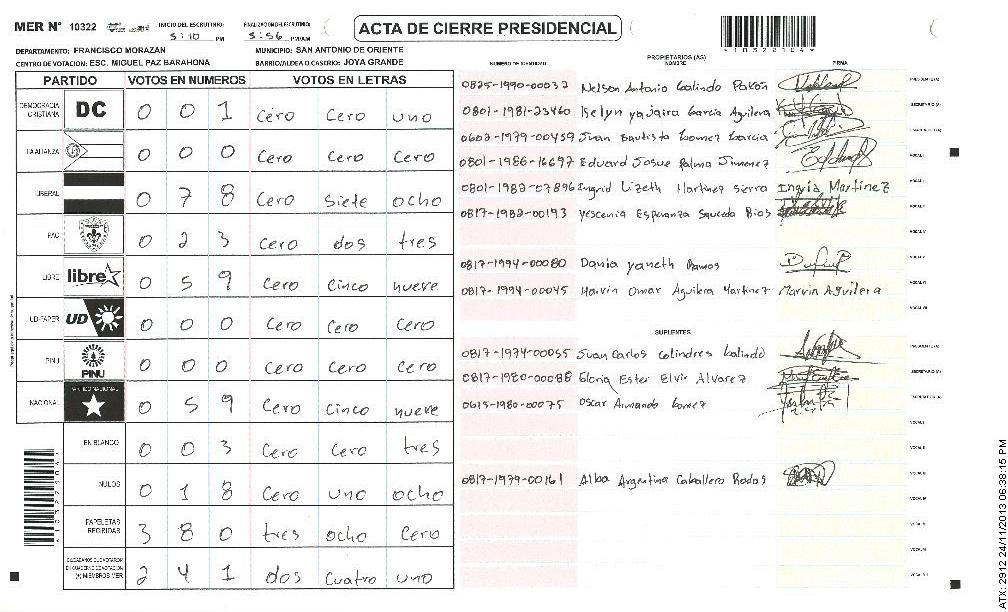 MER N° 10322
INICIO DEL ESCRUTINIO: 5:10 PM
FINALIZACION DEL ESCRUTINIO: 5:56 PM/AM
ACTA DE CIERRE PRESIDENCIAL
DEPARTAMENTO: FRANCISCO MORAZAN
MUNICIPIO: SAN ANTONIO DE ORIENTE
CENTRO DE VOTACION: ESC. MIGUEL PAZ BARAHONA
BARRIO/ALDEA O CASERIO: JOYA GRANDE
PARTIDO VOTOS EN NUMEROS VOTOS EN LETRAS
DEMOCRACIA CRISTIANA DC 0 0 1 Cero Cero uno
LA ALIANZA 0 0 0 Cero Cero Cero
LIBERAL 0 7 8 Cero Siete ocho
PAC 0 2 3 Cero dos tres
LIBRE libre 0 5 9 Cero Cinco nueve
UD-FAPER UD 0 0 0 Cero Cero Cero
PINU PINU 0 0 0 Cero Cero Cero
NACIONAL PARTIDO NACIONAL 0 5 9 Cero Cinco nueve
EN BLANCO 0 0 3 Cero Cero tres
NULOS 0 1 8 Cero uno ocho
PAPELETAS RECIBIDAS 3 8 0 tres ocho Cero
CIUDADANOS QUE VOTARON EN CUADERNO DE VOTACION (+) MIEMBROS MER 2 4 1 dos Cuatro uno
NUMERO DE IDENTIDAD
PROPIETARIOS (AS)
NOMBRE
FIRMA
0825-1990-00032 Nelson Antonio Galindo Pavón PRESIDENTE(A)
0801-1981-23460 Kelyn yajaira Garcia Aguilera SECRETARIO (A)
0602-1979-00459 Juan Bautista Gomez Garcia
0801-1986-16697 Eduard Josue Palma Jimenez VOCAL I
0801-1982-07896 Ingrid Lizeth Martinez Sierra Ingrid Martinez
0817-1982-00193 Yescenia Esperanza Sauceda Rios
0817-1994-00080 Dania yaneth Ramos
0817-1994-00045 Marvin Omar Aguilera Martinez Marvin Aguilera
SUPLENTES
0817-1974-00055 Juan Carlos Colindres Galindo PRESIDENTE(A)
0817-1980-00088 Gloria Ester Elvir Alvarez SECRETARIO (A)
0615-1980-00075 Oscar Armando Gomez
0817-1979-00161 Alba Argentina Caballero Rodas
ATX: 2912 24/11/2013 06:38:15 PM